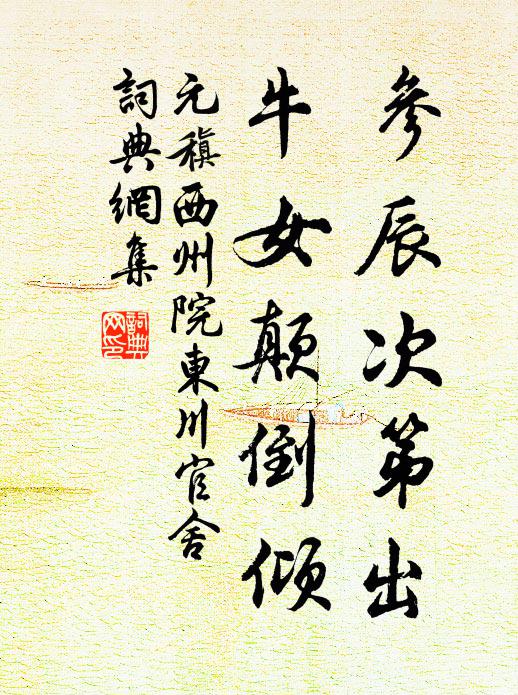 參辰次第出
牛女顛倒傾
元稹西州院東川官舍
詞典網集
詞典網印